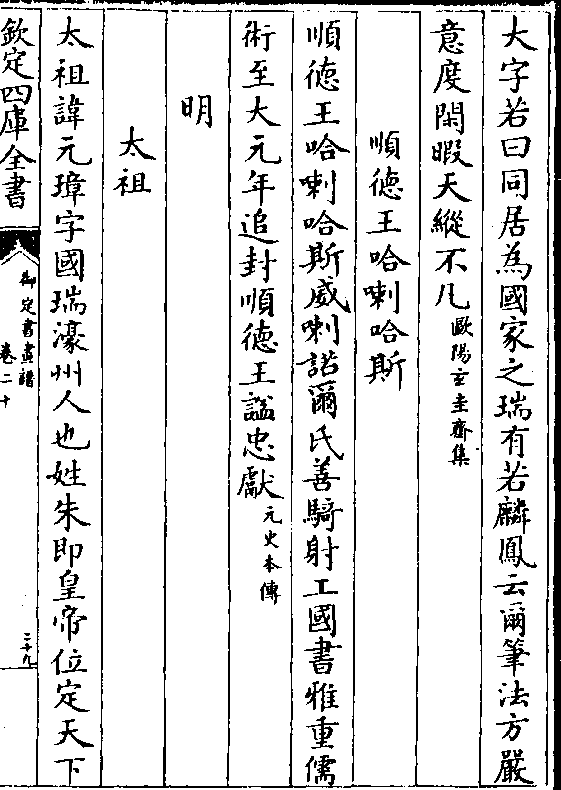 大字若曰同居為國家之瑞有若麟鳳云爾筆法方嚴
意度閑暇天縱不凡歐陽玄圭齋集
順德王哈喇哈斯
順德王哈喇哈斯威喇諾爾氏善騎射工國書雅重儒
術至大元年追封順德王謚忠獻元史本傳
明
太祖
太祖諱元璋字國瑞濠州人也姓朱即皇帝位定天下
欽定四庫全書
御定書畫譜
卷二十
三十九